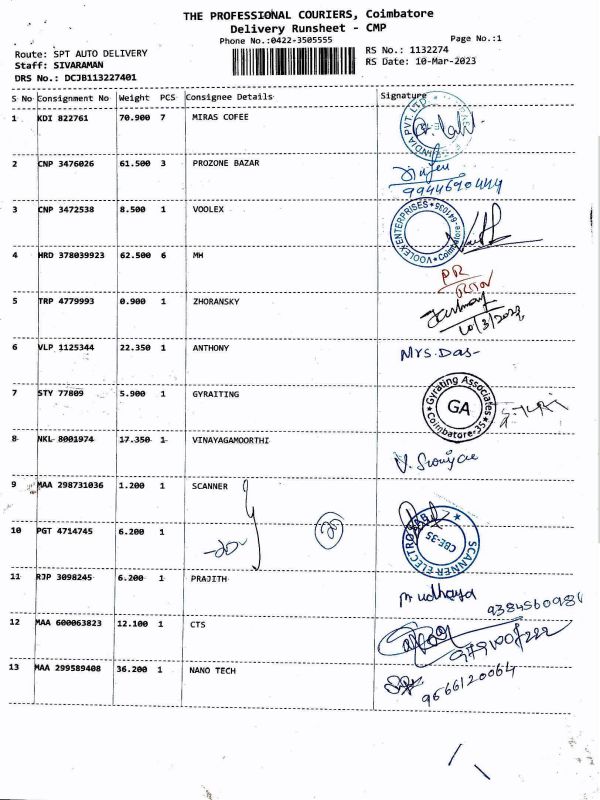 THE PROFESSIONAL COURIERS, Coimbatore
Delivery Runsheet - CMP
Phone No.:0422-3505555
Page No.:1
Route: SPT AUTO DELIVERY
RS No.: 1132274
Staff: SIVARAMAN
RS Date: 10-Mar-2023
DRS No.: DCJB113227401
S No Consignment No Weight PCS Consignee Details Signature
1 KDI 822761 70.900 7 MIRAS COFEE
INDIA PVT. LTD
2 CNP 3476026 61.500 3 PROZONE BAZAR
9944690444
3 CNP 3472538 8.500 1 VOOLEX
VOOLEX ENTERPRISES * Coimbatore-641035
4 HRD 378039923 62.500 6 MH
PR
5 TRP 4779993 0.900 1 ZHORANSKY
10/3/2023
6 VLP 1125344 22.350 1 ANTHONY
Mrs. Das-
7 STY 77809 5.900 1 GYRAITING
Gyrating Associates
GA
Coimbatore-35
8 NKL 8001974 17.350 1 VINAYAGAMOORTHI
9 MAA 298731036 1.200 1 SCANNER
10 PGT 4714745 6.200 1
20
SCANNER ELECTROLAB
CBE-35
11 RJP 3098245 6.200 1 PRAJITH
9384560984
12 MAA 600063823 12.100 1 CTS
13 MAA 299589408 36.200 1 NANO TECH
9566120064